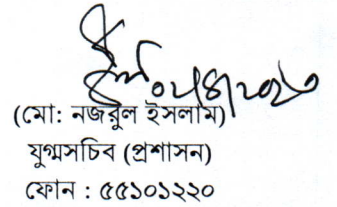 (মো: নজরুল ইসলাম)
যুগ্মসচিব (প্রশাসন)
ফোন : ৫৫১০১২২০